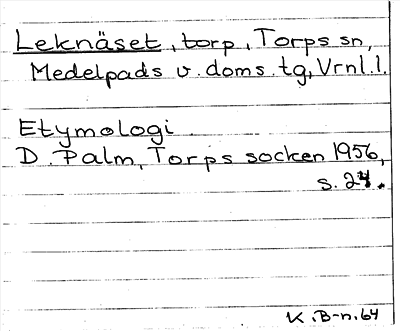 Leknäset, torp, Torps sn,
Medelpads v. doms. tg, Vrnl. l.
Etymologi
D. Palm, Torps socken 1956,
s. 24.
K. B-n. 64